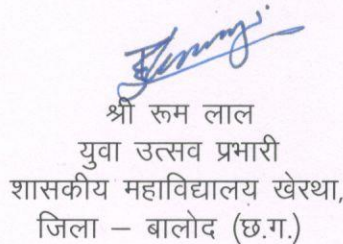 श्री रूम लाल
युवा उत्सव प्रभारी
शासकीय महाविद्यालय खेरथा,
जिला – बालोद (छ.ग.)